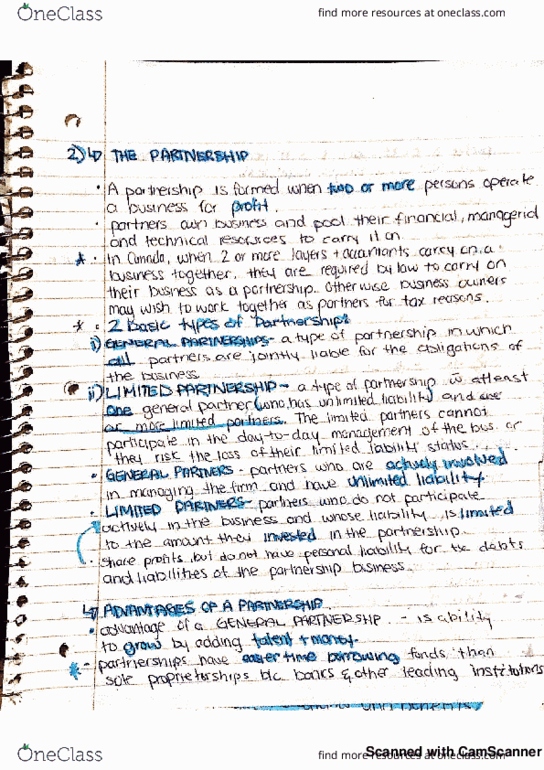 OneClass
find more resources at oneclass.com
2) ↳ THE PARTNERSHIP
· A partnership is formed when two or more persons operate
a business for profit.
· partners own business and pool their financial, managerial
and technical resources to carry it on.
* · In Canada, when 2 or more lawyers + accountants carry on a
business together, they are required by law to carry on
their business as a partnership. Otherwise business owners
may wish to work together as partners for tax reasons.
* · 2 Basic types of Partnerships
i) GENERAL PARTNERSHIPS - a type of partnership in which
all partners are jointly liable for the obligations of
the business
ii) LIMITED PARTNERSHIP - a type of partnership w atleast
one general partner (who has unlimited liability) and one
or more limited partners. The limited partners cannot
participate in the day-to-day management of the bus. or
they risk the loss of their limited liability status.
· GENERAL PARTNERS - partners who are actively involved
in managing the firm and have unlimited liability.
· LIMITED PARTNERS - partners who do not participate
actively in the business and whose liability is limited
to the amount they invested in the partnership
· share profits, but do not have personal liability for the debts
and liabilities of the partnership business.
↳ ADVANTAGES OF A PARTNERSHIP
· advantage of a GENERAL PARTNERSHIP - is ability
to grow by adding talent + money.
* · partnerships have easier time borrowing funds than
sole proprietorships b/c banks & other lending institutions
OneClass
find more resources at oneclass.com
Scanned with CamScanner